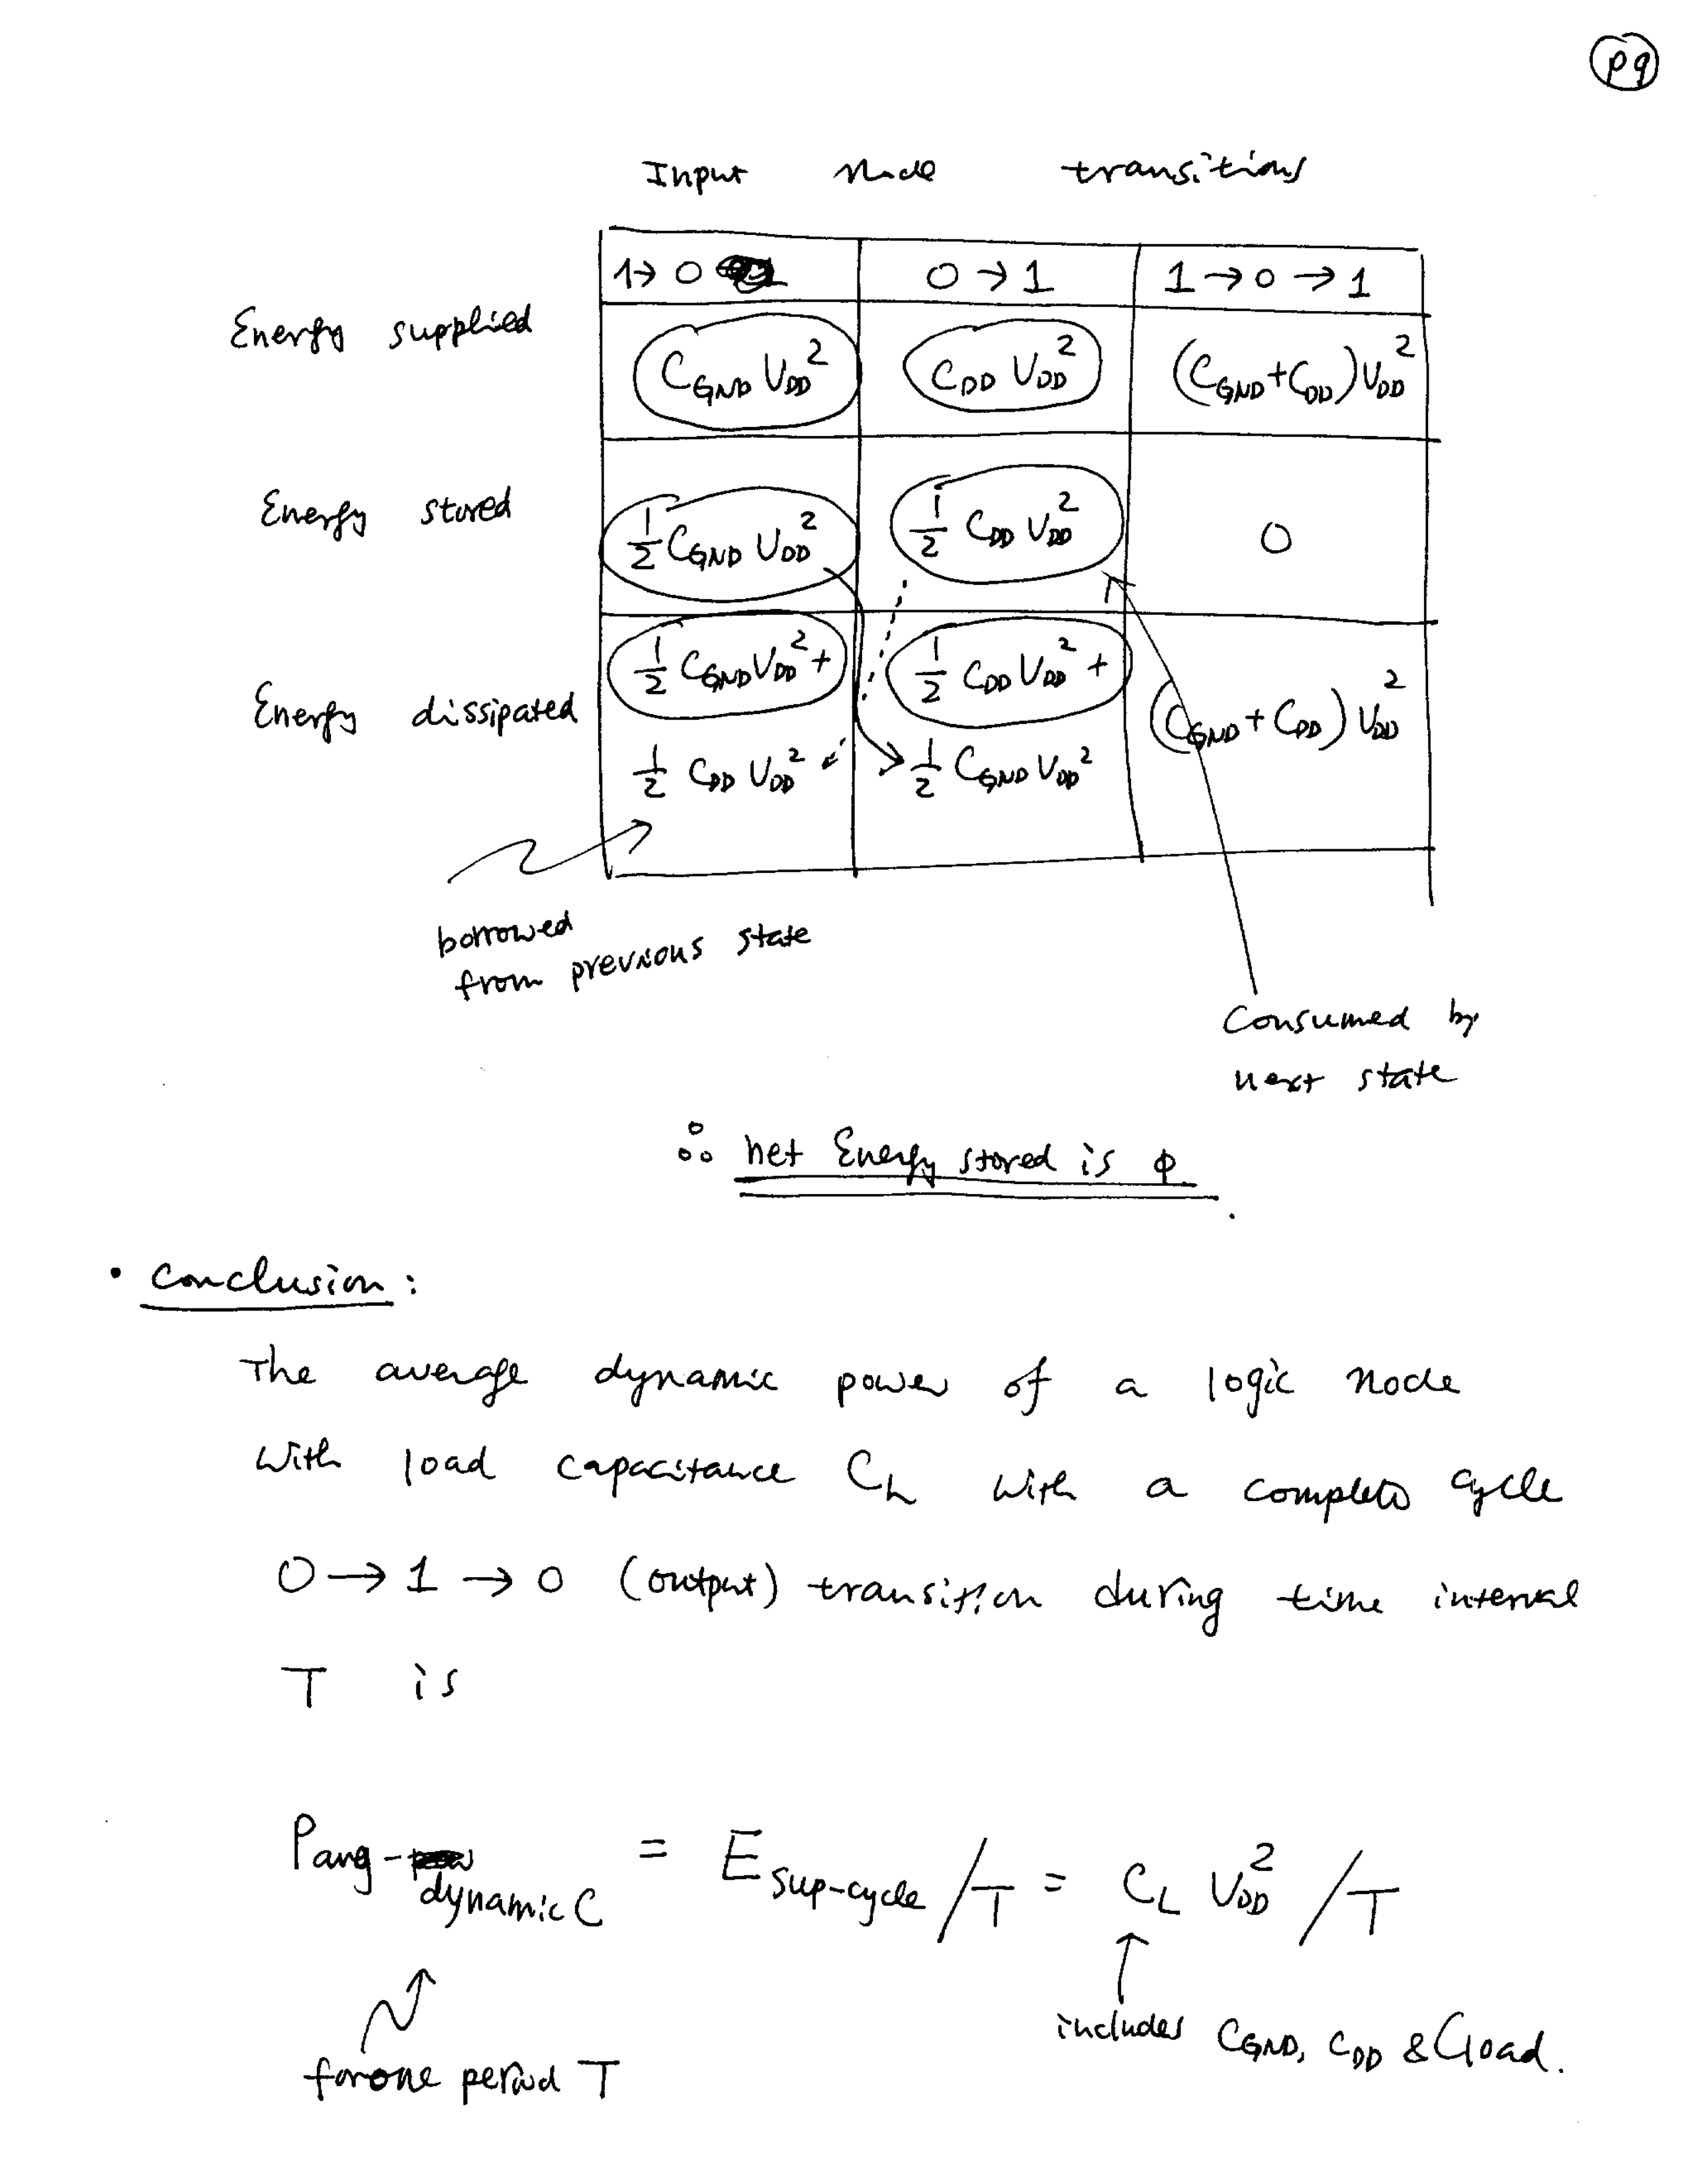 p9
Input node transitions
1→0 0→1 1→0→1
Energy supplied C_GND V_DD² C_DD V_DD² (C_GND+C_DD)V_DD²
Energy stored ½ C_GND V_DD² ½ C_DD V_DD² 0
Energy dissipated ½ C_GND V_DD² + ½ C_DD V_DD² + (C_GND+C_DD)V_DD²
½ C_DD V_DD² ½ C_GND V_DD²
borrowed
from previous state
Consumed by
next state
∴ net Energy stored is ϕ.
• Conclusion:
The average dynamic power of a logic node
with load capacitance C_L with a complete cycle
0→1→0 (output) transition during time interval
T is
P_avg-dynamic C = E_sup-cycle/T = C_L V_DD²/T
includes C_GND, C_DD & Cload.
for one period T